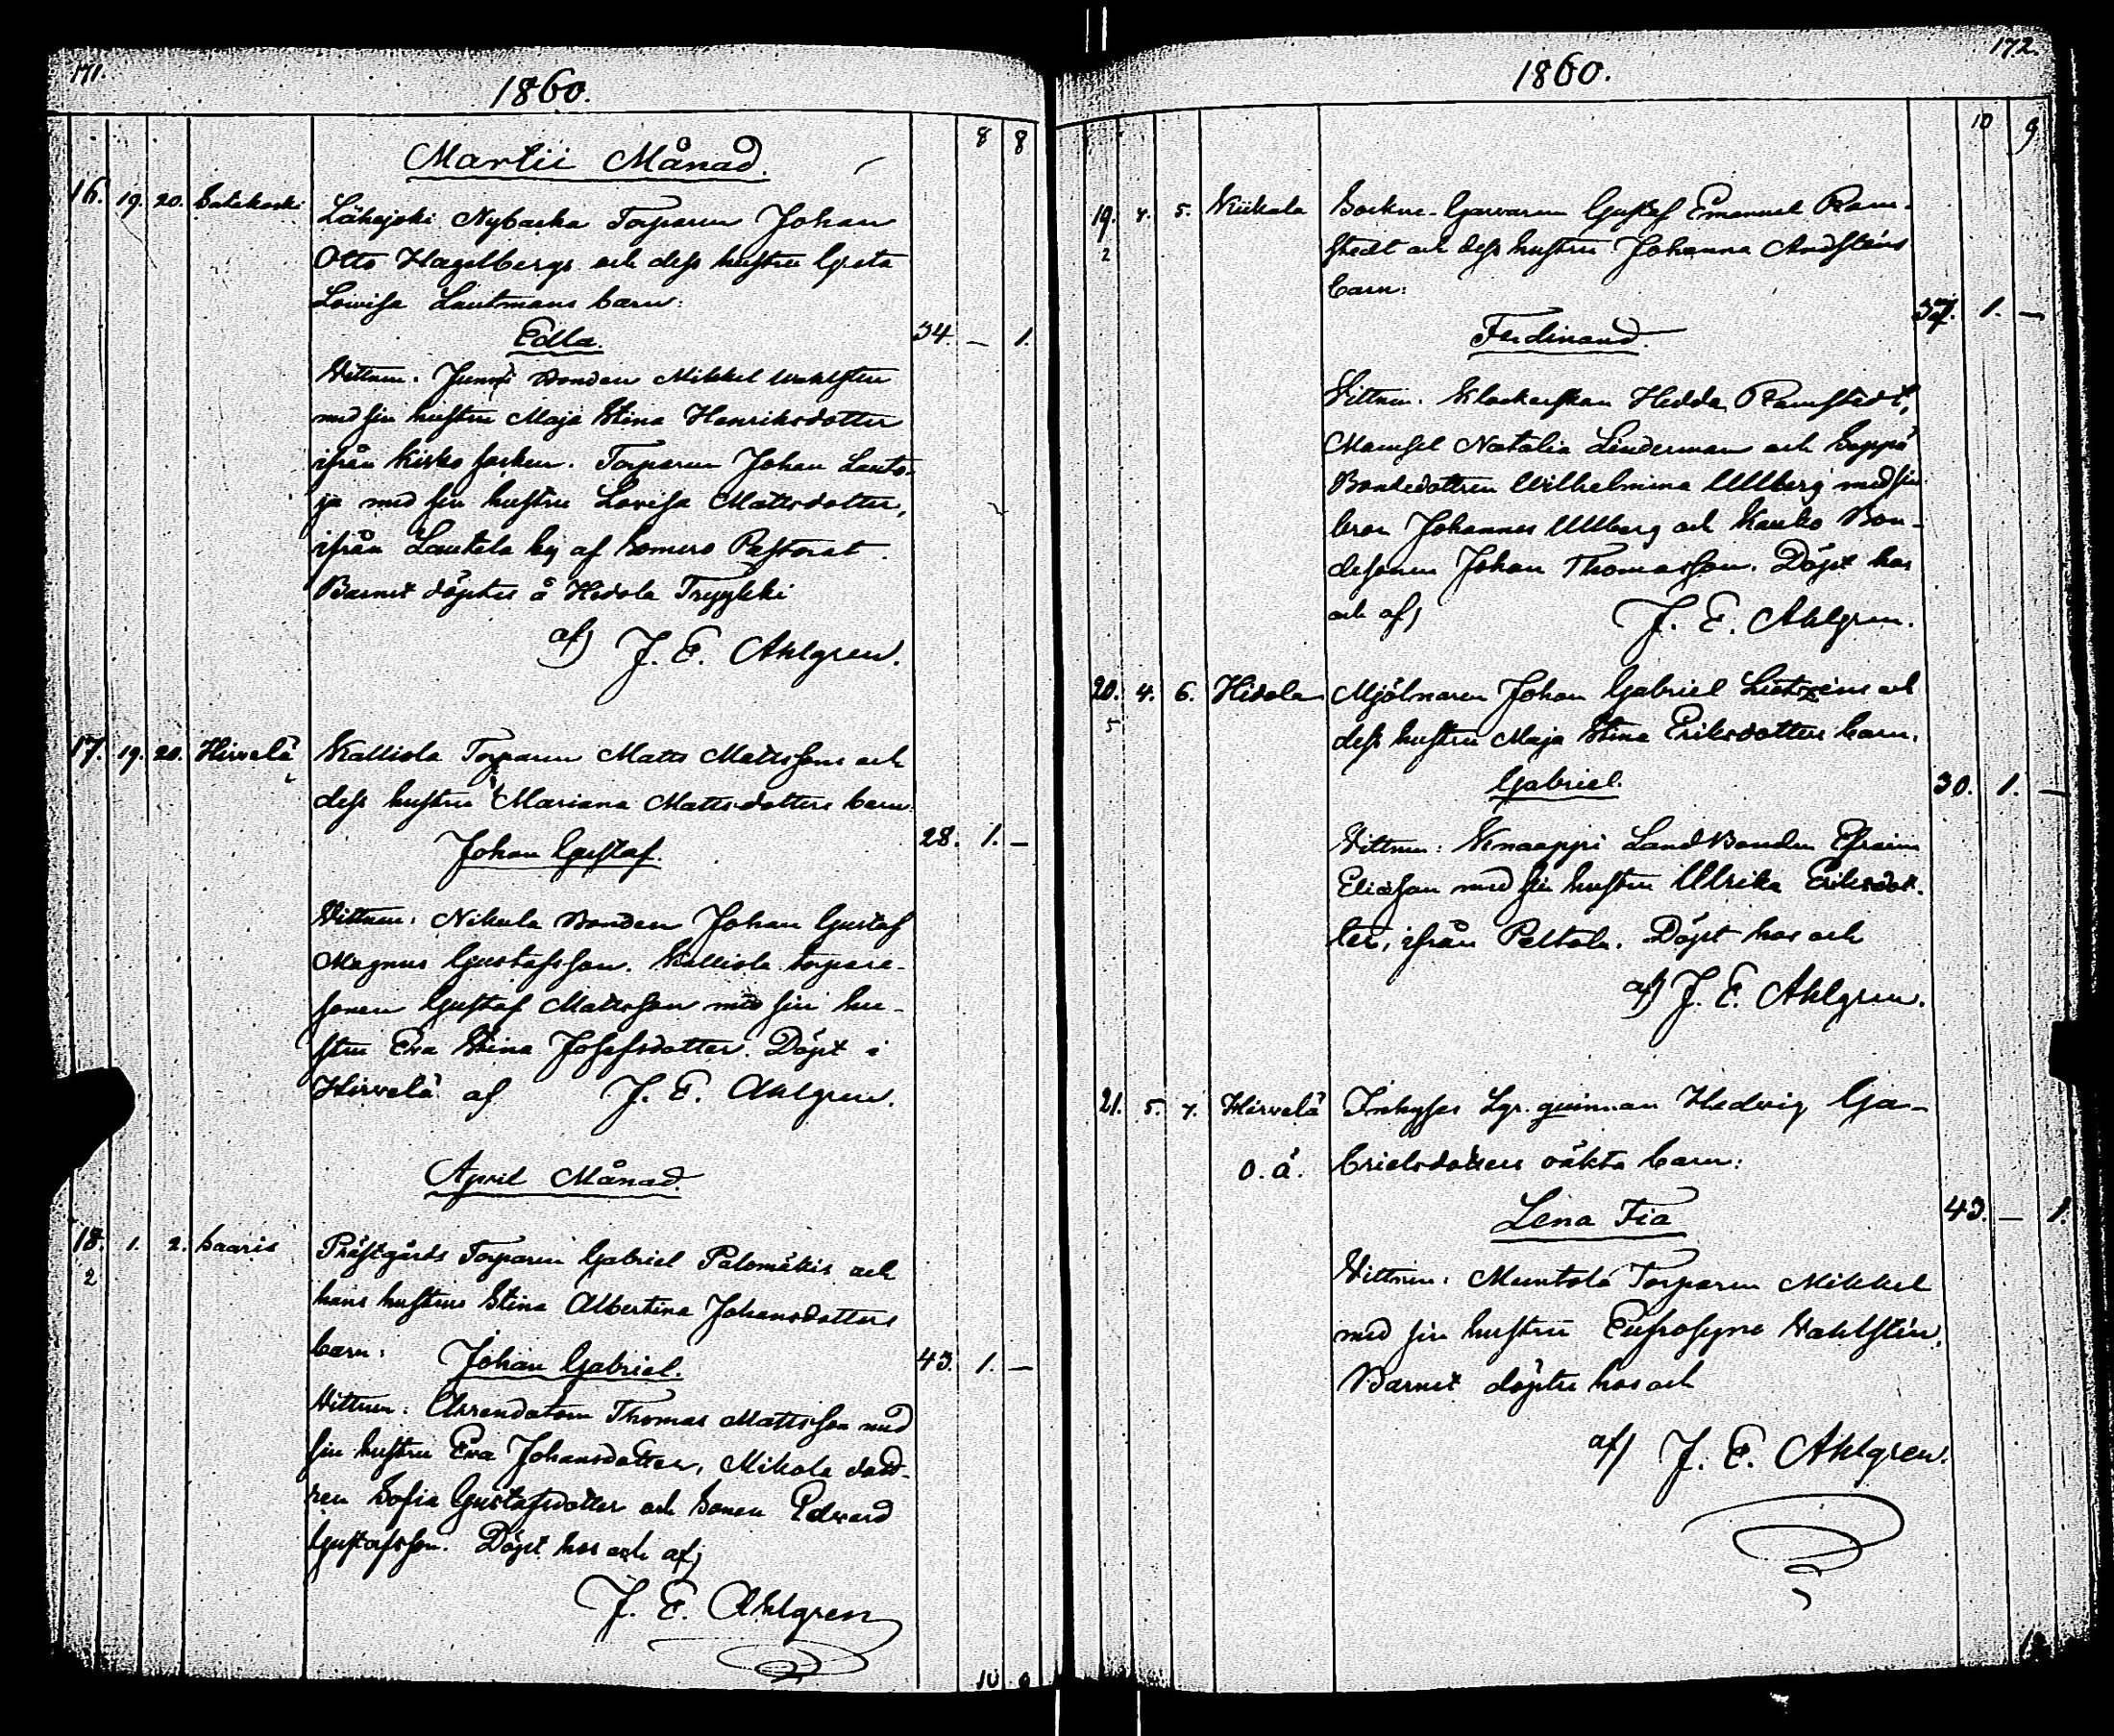 171.
1860.
8 8
Martii Månad.
16. 19. 20. Satakoski Lähejoki Nybacka Torparen Johan
Otto Hagelbergs och dess hustru Greta
Lovisa Lautmans barn:
Edla. 34. — 1.
Vittnen. Bonden Mikkel Wahlsten
med sin hustru Maja Stina Henriksdotter
ifrån Kisko socken. Torparen Johan Lauto-
ja med sin hustru Lovisa Mattsdotter,
ifrån Lautela by af Somero Pastorat.
Barnet döptes å Hidola
af J. E. Ahlgren.
17. 19. 20. Hirvelä Kalliola Torparen Matts Mattssons och
dess hustru Mariana Mattsdotters barn
Johan Gustaf. 28. 1. —
Vittnen: Nikula Bonden Johan Gustaf
Magnus Gustafsson. Kalliola torpare-
sonen Gustaf Mattsson med sin hu-
stru Eva Stina Josefsdotter. Döpt i
Hirvelä af J. E. Ahlgren.
April Månad.
18. 1. 2. Saaris Prästgårds Torparen Gabriel Palomäkis och
2
hans hustrus Stina Albertina Johansdotters
barn: Johan Gabriel. 43. 1. —
Vittnen: Arrendatorn Thomas Mattsson med
sin hustru Eva Johansdotter, Mikola dott-
ren Sofia Gustafsdotter och Sonen Edvard
Gustafsson. Döpt hos och af
J. E. Ahlgren
10 9
172.
1860.
10 9
19. 4. 5. Kiikala Sockne-Garvaren Gustaf Emanuel Ram-
2
stedt och dess hustru Johanna Andsténs
barn:
37. 1. —
Ferdinand.
Vittnen. Klockarskan Hedda Ramstedt,
Mamsel Natalia Linderman och Seppä
Bondedottren Wilhelmina Ullberg med sin
bror Johannes Ullberg och Kauko Bon-
desonen Johan Thomasson. Döpt hos
och af J. E. Ahlgren.
20. 4. 6. Hidola Mjölnaren Johan Gabriel och
5
dess hustru Maja Stina Eriksdotters barn.
Gabriel. 30. 1. —
Vittnen: Knaappi LandBonden Efraim
Eliasson med sin hustru Ulrika Eriksdot-
ter, ifrån Peltola. Döpt hos och
af J. E. Ahlgren.
21. 5. 7. Hirvelä Inhyses Lgr. quinnan Hedvig Ga-
o. ä. brielsdotters oäkta barn:
Lena Fia 43. — 1.
Vittnen: Muntola Torparen Mikkel
med sin hustru Eufrosyne Wahlstén,
Barnet döptes hos och
af J. E. Ahlgren.